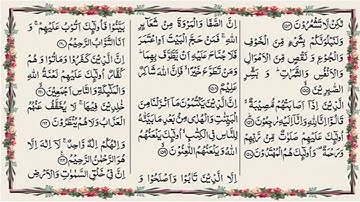 لٰكِنْ لَّا تَشْعُرُوْنَ ۝١٥٤
وَلَنَبْلُوَنَّكُمْ بِشَيْءٍ مِّنَ الْخَوْفِ
وَالْجُوْعِ وَنَقْصٍ مِّنَ الْاَمْوَالِ
وَالْاَنْفُسِ وَالثَّمَرٰتِ ؕ وَبَشِّرِ
الصّٰبِرِيْنَ ۝١٥٥
الَّذِيْنَ اِذَآ اَصَابَتْهُمْ مُّصِيْبَةٌ ۙ
قَالُوْٓا اِنَّا لِلّٰهِ وَاِنَّآ اِلَيْهِ رٰجِعُوْنَ ۝١٥٦
اُولٰٓئِكَ عَلَيْهِمْ صَلَوٰتٌ مِّنْ رَّبِّهِمْ
وَرَحْمَةٌ ۫ وَاُولٰٓئِكَ هُمُ الْمُهْتَدُوْنَ ۝١٥٧
اِنَّ الصَّفَا وَالْمَرْوَةَ مِنْ شَعَآئِرِ
اللّٰهِ ۚ فَمَنْ حَجَّ الْبَيْتَ اَوِ اعْتَمَرَ
فَلَا جُنَاحَ عَلَيْهِ اَنْ يَّطَّوَّفَ بِهِمَا ؕ
وَمَنْ تَطَوَّعَ خَيْرًا ۙ فَاِنَّ اللّٰهَ شَاكِرٌ
عَلِيْمٌ ۝١٥٨
اِنَّ الَّذِيْنَ يَكْتُمُوْنَ مَآ اَنْزَلْنَا مِنَ
الْبَيِّنٰتِ وَالْهُدٰى مِنْۢ بَعْدِ مَا بَيَّنّٰهُ
لِلنَّاسِ فِي الْكِتٰبِ ۙ اُولٰٓئِكَ يَلْعَنُهُمُ
اللّٰهُ وَيَلْعَنُهُمُ اللّٰعِنُوْنَ ۝١٥٩
اِلَّا الَّذِيْنَ تَابُوْا وَاَصْلَحُوْا وَ
بَيَّنُوْا فَاُولٰٓئِكَ اَتُوْبُ عَلَيْهِمْ ۚ وَ
اَنَا التَّوَّابُ الرَّحِيْمُ ۝١٦٠
اِنَّ الَّذِيْنَ كَفَرُوْا وَمَاتُوْا وَهُمْ
كُفَّارٌ اُولٰٓئِكَ عَلَيْهِمْ لَعْنَةُ اللّٰهِ
وَالْمَلٰٓئِكَةِ وَالنَّاسِ اَجْمَعِيْنَ ۝١٦١
خٰلِدِيْنَ فِيْهَا ۚ لَا يُخَفَّفُ عَنْهُمُ
الْعَذَابُ وَلَا هُمْ يُنْظَرُوْنَ ۝١٦٢
وَاِلٰهُكُمْ اِلٰهٌ وَّاحِدٌ ۚ لَآ اِلٰهَ اِلَّا
هُوَ الرَّحْمٰنُ الرَّحِيْمُ ۝١٦٣
اِنَّ فِيْ خَلْقِ السَّمٰوٰتِ وَالْاَرْضِ